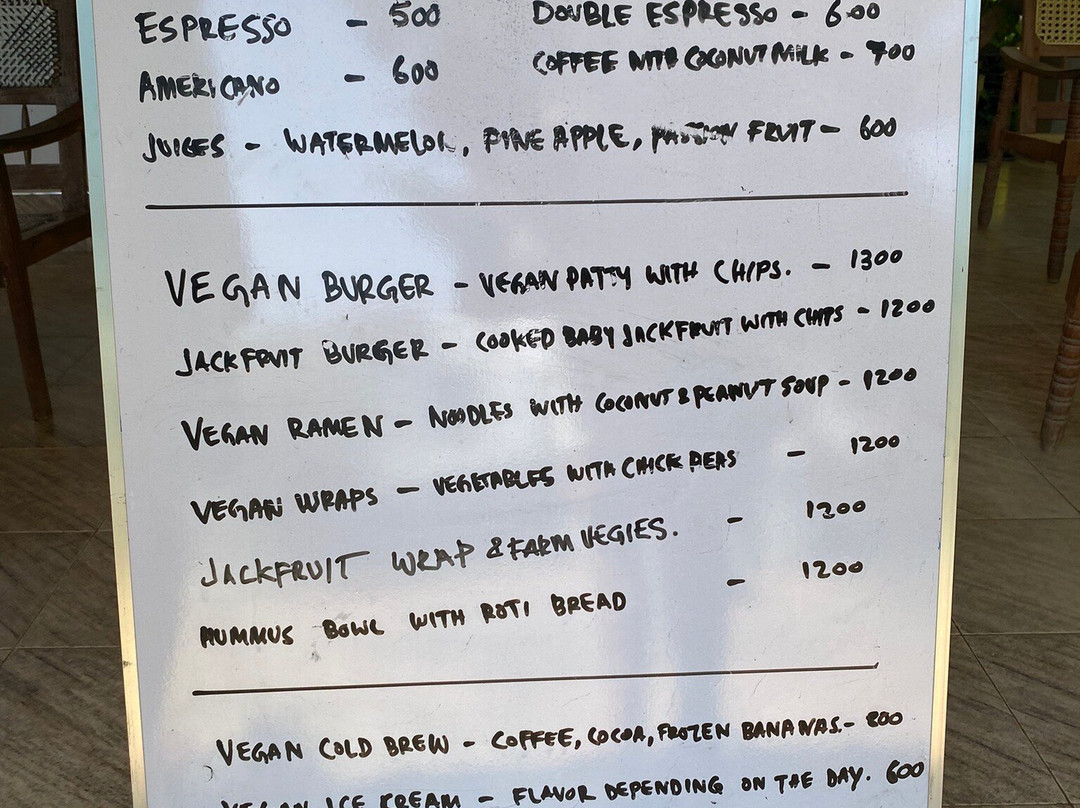 ESPRESSO - 500 DOUBLE ESPRESSO - 600
AMERICANO - 600 COFFEE WITH COCONUT MILK - 700
JUICES - WATERMELON, PINE APPLE, PASSION FRUIT - 600
VEGAN BURGER - VEGAN PATTY WITH CHIPS. - 1300
JACKFRUIT BURGER - COOKED BABY JACKFRUIT WITH CHIPS - 1200
VEGAN RAMEN - NOODLES WITH COCONUT & PEANUT SOUP - 1200
VEGAN WRAPS - VEGETABLES WITH CHICK PEAS - 1200
JACKFRUIT WRAP & FARM VEGIES. - 1200
HUMMUS BOWL WITH ROTI BREAD - 1200
VEGAN COLD BREW - COFFEE, COCOA, FROZEN BANANAS. - 800
VEGAN ICE CREAM - FLAVOR DEPENDING ON THE DAY. 600